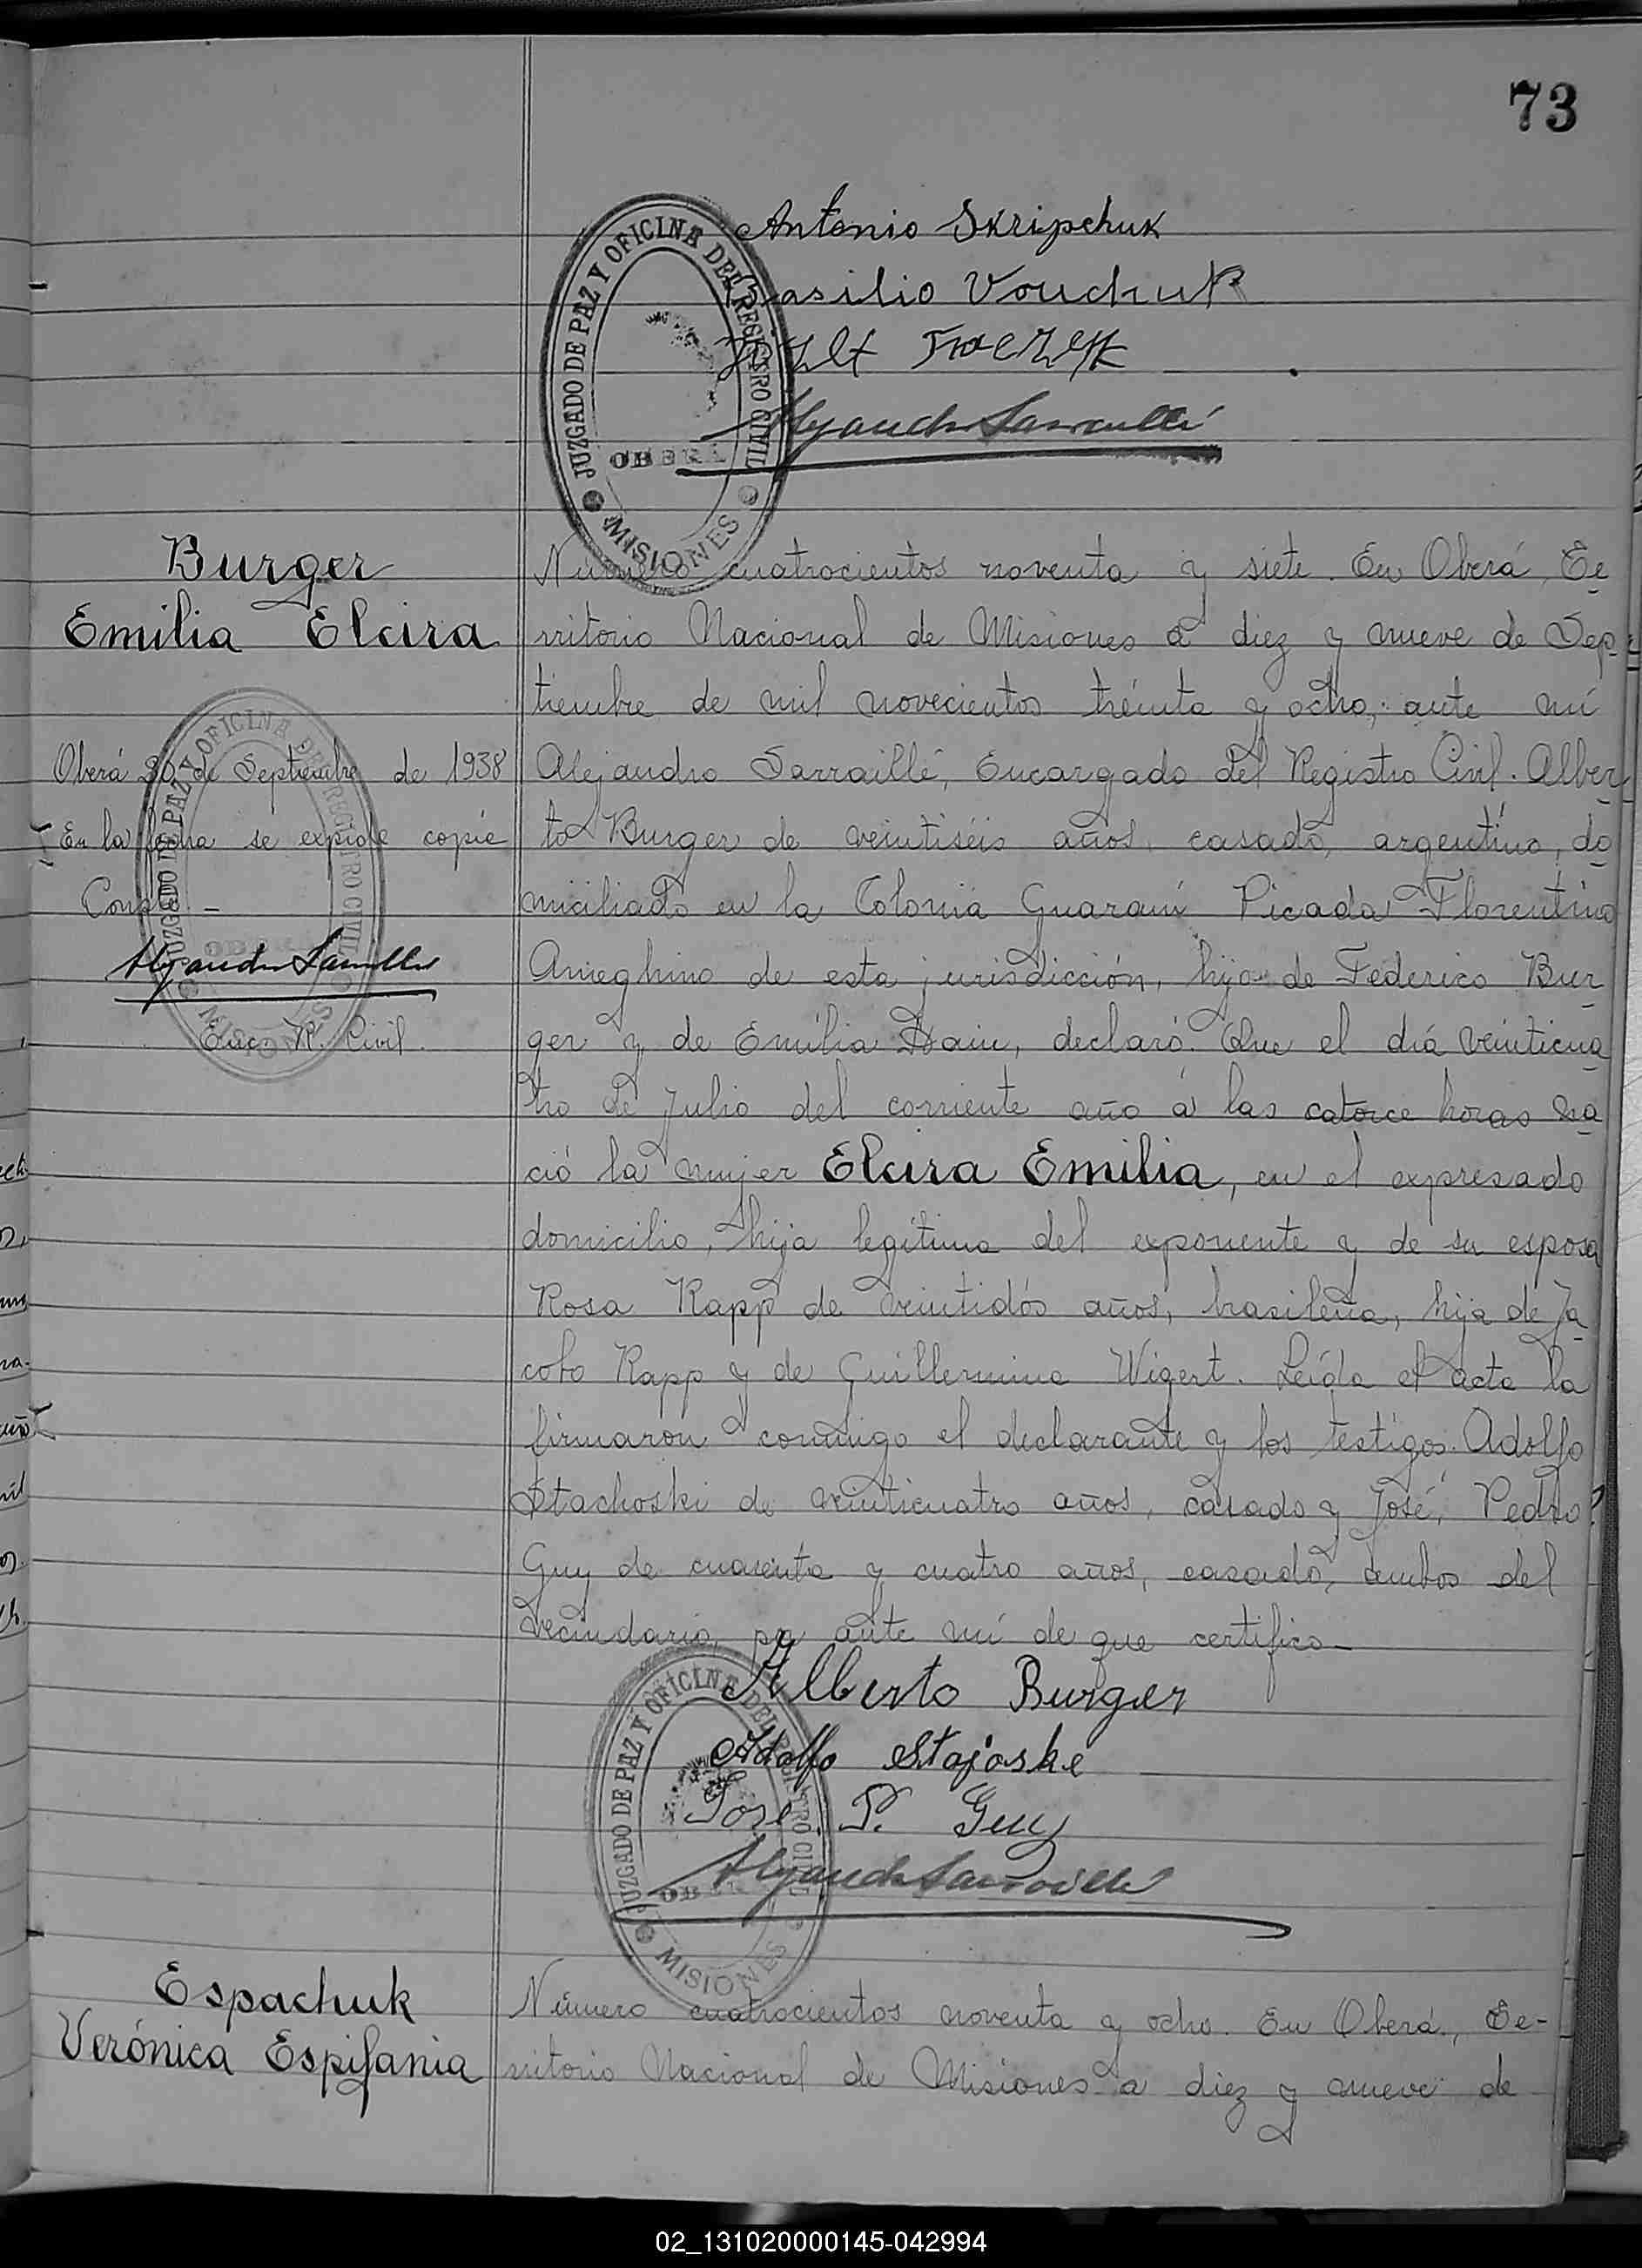 73
Antonio Skripchuk
Basilio Vouchuk
JUZGADO DE PAZ Y OFICINA DEL REGISTRO CIVIL
OBERÁ
MISIONES
Burger
Emilia Elcira
Oberá 20 de Septiembre de 1938
En la fecha se expide copia
Conste. -
Enc. R. Civil.
JUZGADO DE PAZ Y OFICINA DEL REGISTRO CIVIL
OBERÁ
MISIONES
Número cuatrocientos noventa y siete. En Oberá, Te
rritorio Nacional de Misiones á diez y nueve de Sep
tiembre de mil novecientos treinta y ocho, ante mí
Alejandro Sarraillé, Encargado del Registro Civil. Alber
to Burger de veintiséis años, casado, argentino, do
miciliado en la Colonia Guaraní Picada Florentino
Ameghino de esta jurisdicción, hijo de Federico Bur
ger y de Emilia, declaró: Que el día veinticua
tro de Julio del corriente año á las catorce horas na
ció la mujer Elcira Emilia, en el expresado
domicilio, hija legítima del exponente y de su esposa
Rosa Rapp de veintidós años, brasileña, hija de Ja
cobo Rapp y de Guillermina Wigert. Leída el acta la
firmaron conmigo el declarante y los testigos. Adolfo
Stachoski de veinticuatro años, casado y José, Pedro
Guy de cuarenta y cuatro años, casado, ambos del
vecindario, ante mí de que certifico—
Alberto Burger
Adolfo Stajoske
Jose. P. Guy
JUZGADO DE PAZ Y OFICINA DEL REGISTRO CIVIL
OBERÁ
MISIONES
Espachuk
Verónica Espifania
Número cuatrocientos noventa y ocho. En Oberá, Te-
rritorio Nacional de Misiones a diez y nueve de
02_131020000145-042994